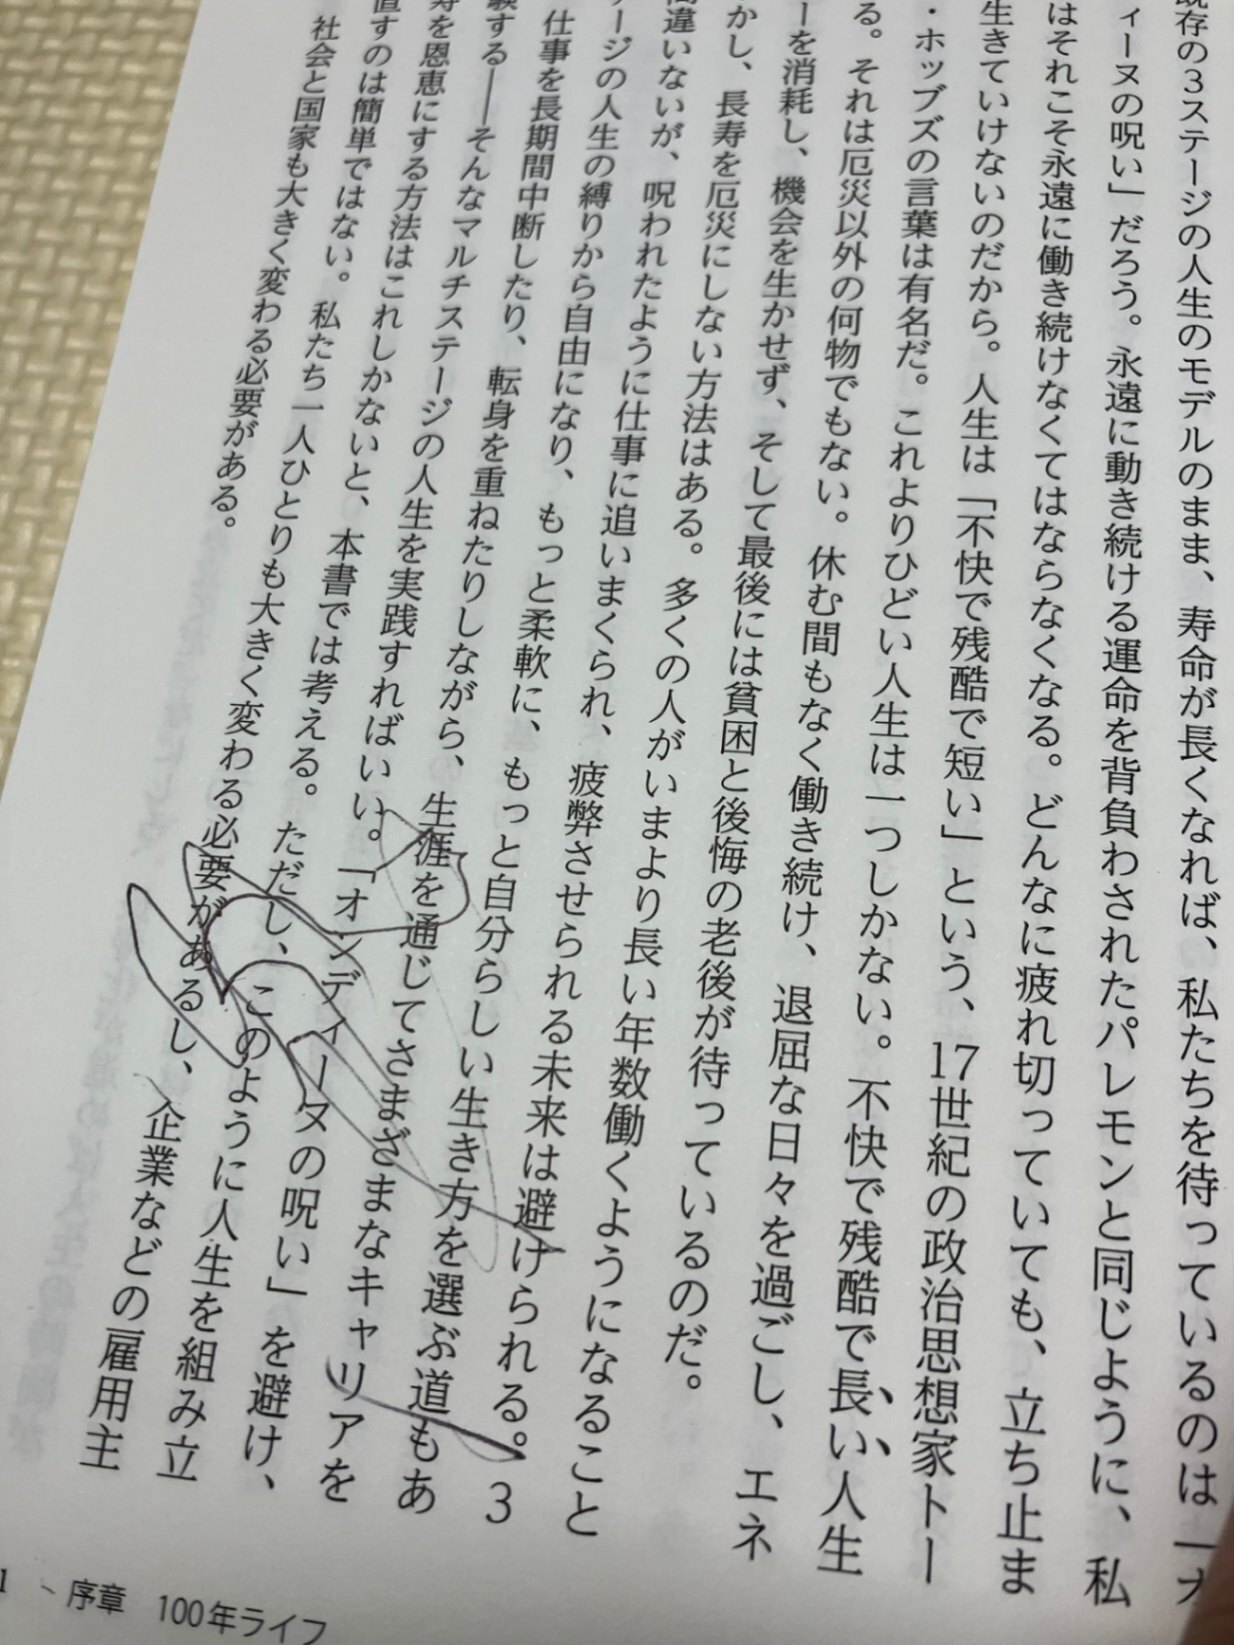 既存の3ステージの人生のモデルのまま、寿命が長くなれば、私たちを待っているのは「オ
ィーヌの呪い」だろう。永遠に動き続ける運命を背負わされたパレモンと同じように、私
はそれこそ永遠に働き続けなくてはならなくなる。どんなに疲れ切っていても、立ち止ま
生きていけないのだから。人生は「不快で残酷で短い」という、17世紀の政治思想家トー
・ホッブズの言葉は有名だ。これよりひどい人生は一つしかない。不快で残酷で長い人生
る。それは厄災以外の何物でもない。休む間もなく働き続け、退屈な日々を過ごし、エネ
ーを消耗し、機会を生かせず、そして最後には貧困と後悔の老後が待っているのだ。
かし、長寿を厄災にしない方法はある。多くの人がいまより長い年数働くようになること
間違いないが、呪われたように仕事に追いまくられ、疲弊させられる未来は避けられる。3
ージの人生の縛りから自由になり、もっと柔軟に、もっと自分らしい生き方を選ぶ道もあ
仕事を長期間中断したり、転身を重ねたりしながら、生涯を通じてさまざまなキャリアを
験する――そんなマルチステージの人生を実践すればいい。「オンディーヌの呪い」を避け、
寿を恩恵にする方法はこれしかないと、本書では考える。ただし、このように人生を組み立
直すのは簡単ではない。私たち一人ひとりも大きく変わる必要があるし、企業などの雇用主
社会と国家も大きく変わる必要がある。
1 序章 100年ライフ